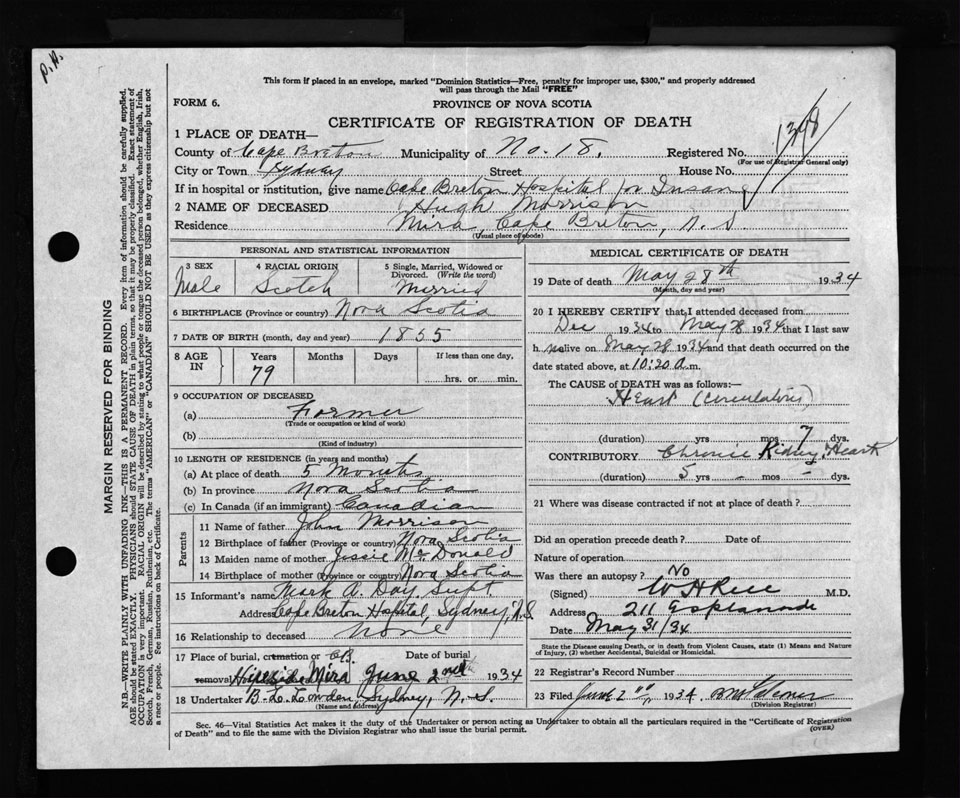 P.H.
This form if placed in an envelope, marked "Dominion Statistics—Free, penalty for improper use, $300," and properly addressed
will pass through the Mail "FREE"
FORM 6.
PROVINCE OF NOVA SCOTIA
CERTIFICATE OF REGISTRATION OF DEATH
1 PLACE OF DEATH—
1348
County of Cape Breton Municipality of No. 18. Registered No.
(For use of Registrar General only)
City or Town Sydney Street House No.
If in hospital or institution, give name Cape Breton Hospital for Insane
2 NAME OF DECEASED Hugh Morrison
Residence Mira, Cape Breton, N. S.
(Usual place of abode)
PERSONAL AND STATISTICAL INFORMATION
3 SEX Male
4 RACIAL ORIGIN Scotch
5 Single, Married, Widowed or Divorced. (Write the word) Married
6 BIRTHPLACE (Province or country) Nova Scotia
7 DATE OF BIRTH (month, day and year) 1855
8 AGE IN Years 79 Months Days If less than one day, hrs. or min.
9 OCCUPATION OF DECEASED
(a) Farmer
(Trade or occupation or kind of work)
(b)
(Kind of industry)
10 LENGTH OF RESIDENCE (in years and months)
(a) At place of death 5 Months
(b) In province Nova Scotia
(c) In Canada (if an immigrant) Canadian
Parents
11 Name of father John Morrison
12 Birthplace of father (Province or country) Nova Scotia
13 Maiden name of mother Jessie McDonald
14 Birthplace of mother (Province or country) Nova Scotia
15 Informant's name Mark A. Day, Supt.
Address Cape Breton Hospital, Sydney, N.S
16 Relationship to deceased None
17 Place of burial, cremation or Date of burial
removal Mira June 2nd 1934
18 Undertaker B. L. Lowden Sydney, N. S.
(Name and address)
MEDICAL CERTIFICATE OF DEATH
19 Date of death May 28th 1934
(Month, day and year)
20 I HEREBY CERTIFY that I attended deceased from
Dec 1934 to May 28 1934 that I last saw
h alive on May 28 1934 and that death occurred on the
date stated above, at 10:20 a.m.
The CAUSE of DEATH was as follows:—
Heart (Circulation)
(duration) yrs mos 7 dys.
CONTRIBUTORY Chronic Kidney & Heart
(duration) 5 yrs – mos – dys.
21 Where was disease contracted if not at place of death?
Did an operation precede death? Date of
Nature of operation
Was there an autopsy? No
(Signed) M.D.
Address 211 Esplanade
Date May 31/34
State the Disease causing Death, or in death from Violent Causes, state (1) Means and Nature
of Injury, (2) whether Accidental, Suicidal or Homicidal.
22 Registrar's Record Number
23 Filed June 2 1934
(Division Registrar)
Sec. 46—Vital Statistics Act makes it the duty of the Undertaker or person acting as Undertaker to obtain all the particulars required in the "Certificate of Registration
of Death" and to file the same with the Division Registrar who shall issue the burial permit.
(OVER)
MARGIN RESERVED FOR BINDING
N.B.—WRITE PLAINLY WITH UNFADING INK—THIS IS A PERMANENT RECORD. Every item of information should be carefully supplied.
AGE should be stated EXACTLY. PHYSICIANS should STATE CAUSE OF DEATH in plain terms, so that it may be properly classified. Exact statement of
OCCUPATION is very important. RACIAL ORIGIN will be described by stating to what people or tongue the deceased person belonged, whether English, Irish,
Scotch, French, German, Russian, Ruthenian, etc. The terms "AMERICAN" or "CANADIAN" SHOULD NOT BE USED as they express citizenship but not
a race or people. See instructions on back of Certificate.